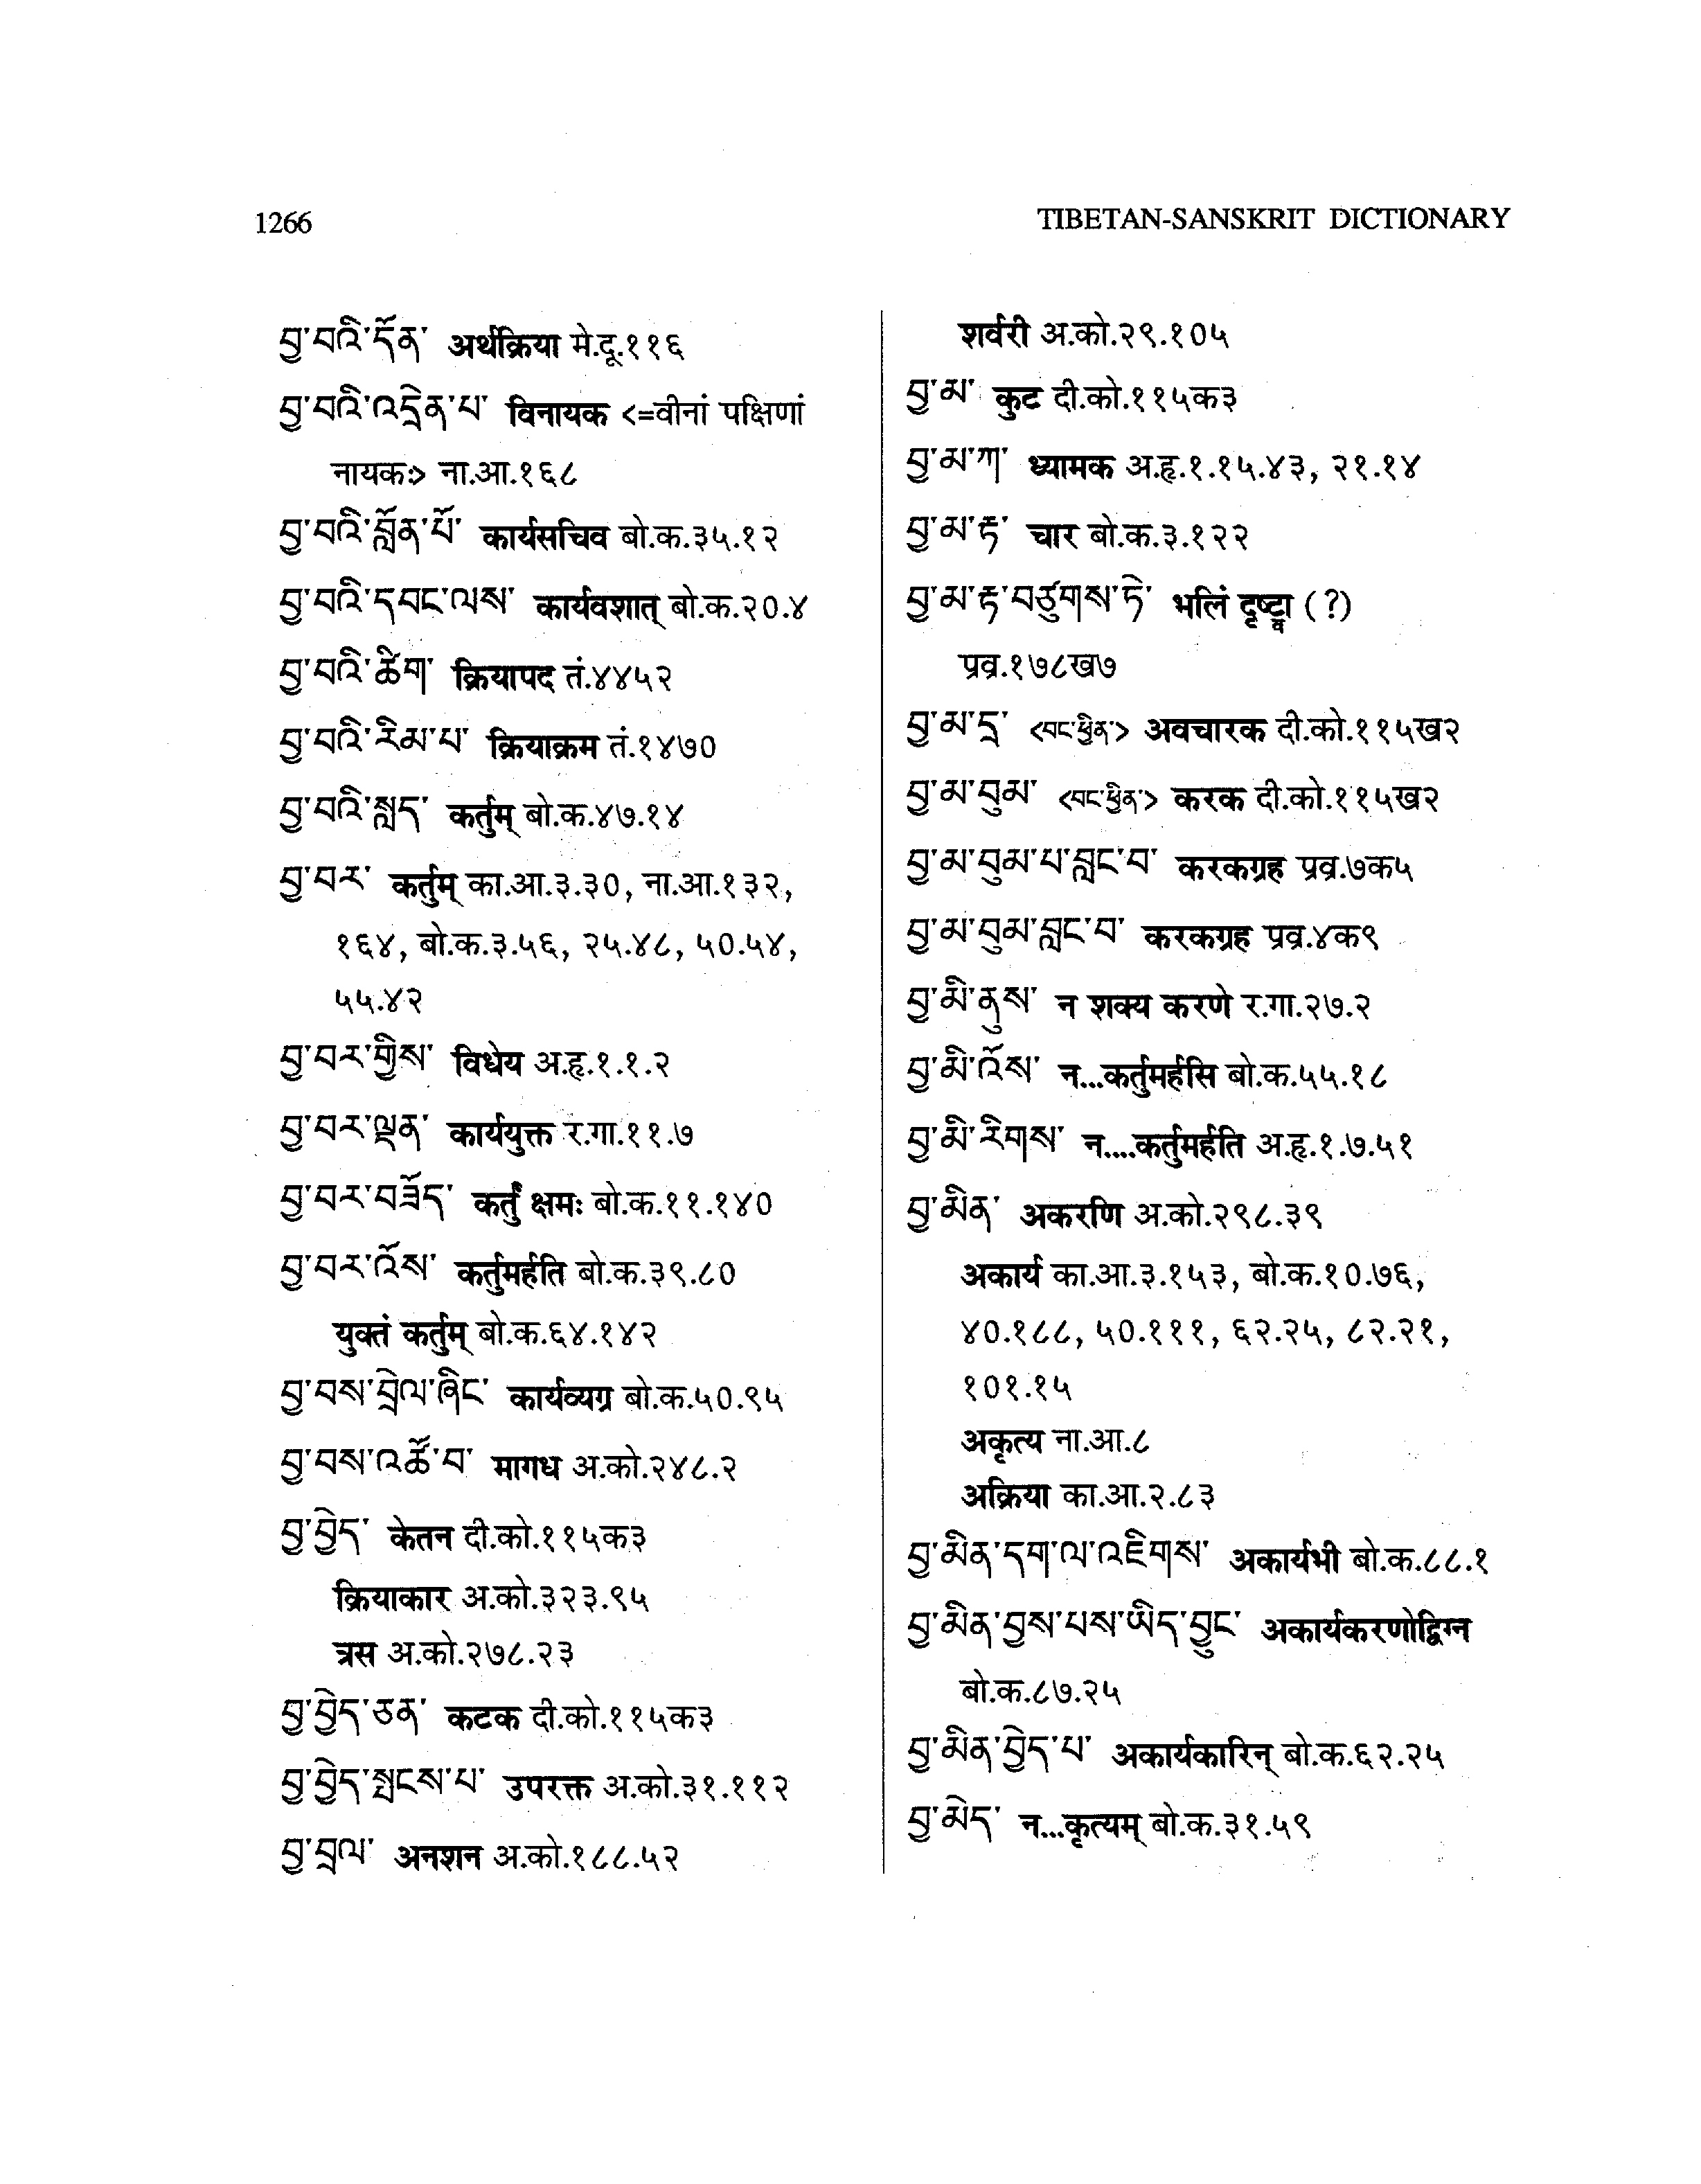 1266
TIBETAN-SANSKRIT DICTIONARY
བྱ་བའི་དོན་ अर्थक्रिया मे.दू.११६
བྱ་བའི་འདྲེན་པ་ विनायक <=वीनां पक्षिणां
नायकः> ना.आ.१६८
བྱ་བའི་བློན་པོ་ कार्यसचिव बो.क.३५.१२
བྱ་བའི་དབང་ལས་ कार्यवशात् बो.क.२०.४
བྱ་བའི་ཚིག་ क्रियापद तं.४४५२
བྱ་བའི་རིམ་པ་ क्रियाक्रम तं.१४७०
བྱ་བའི་སླད་ कर्तुम् बो.क.४७.१४
བྱ་བར་ कर्तुम् का.आ.३.३०, ना.आ.१३२,
१६४, बो.क.३.५६, २५.४८, ५०.५४,
५५.४२
བྱ་བར་གྱིས་ विधेय अ.हृ.१.१.२
བྱ་བར་ལྡན་ कार्ययुक्त र.गा.११.७
བྱ་བར་བཟོད་ कर्तुं क्षमः बो.क.११.१४०
བྱ་བར་འོས་ कर्तुमर्हति बो.क.३९.८०
युक्तं कर्तुम् बो.क.६४.१४२
བྱ་བས་བྲེལ་ཞིང་ कार्यव्यग्र बो.क.५०.९५
བྱ་བས་འཚོ་བ་ मागध अ.को.२४८.२
བྱ་བྱེད་ केतन दी.को.११५क३
क्रियाकार अ.को.३२३.९५
त्रस अ.को.२७८.२३
བྱ་བྱེད་ཅན་ कटक दी.को.११५क३
བྱ་བྱེད་སྤངས་པ་ उपरक्त अ.को.३१.११२
བྱ་བྲལ་ अनशन अ.को.१८८.५२
शर्वरी अ.को.२९.१०५
བྱ་མ་ कुट दी.को.११५क३
བྱ་མ་ཀ་ ध्यामक अ.हृ.१.१५.४३, २१.१४
བྱ་མ་རྟ་ चार बो.क.३.१२२
བྱ་མ་རྟ་བཙུགས་ཏེ་ भलिं दृष्ट्वा (?)
प्रव्र.१७८ख७
བྱ་མ་དྲ་ <བང་ཕྱིན་> अवचारक दी.को.११५ख२
བྱ་མ་བུམ་ <བང་ཕྱིན་> करक दी.को.११५ख२
བྱ་མ་བུམ་པ་བླང་བ་ करकग्रह प्रव्र.७क५
བྱ་མ་བུམ་བླང་བ་ करकग्रह प्रव्र.४क९
བྱ་མི་ནུས་ न शक्य करणे र.गा.२७.२
བྱ་མི་འོས་ न...कर्तुमर्हसि बो.क.५५.१८
བྱ་མི་རིགས་ न....कर्तुमर्हति अ.हृ.१.७.५१
བྱ་མིན་ अकरणि अ.को.२९८.३९
अकार्य का.आ.३.१५३, बो.क.१०.७६,
४०.१८८, ५०.१११, ६२.२५, ८२.२१,
१०१.१५
अकृत्य ना.आ.८
अक्रिया का.आ.२.८३
བྱ་མིན་དག་ལ་འཇིགས་ अकार्यभी बो.क.८८.१
བྱ་མིན་བྱས་པས་ཡིད་བྱུང་ अकार्यकरणोद्विग्न
बो.क.८७.२५
བྱ་མིན་བྱེད་པ་ अकार्यकारिन् बो.क.६२.२५
བྱ་མེད་ न...कृत्यम् बो.क.३१.५९